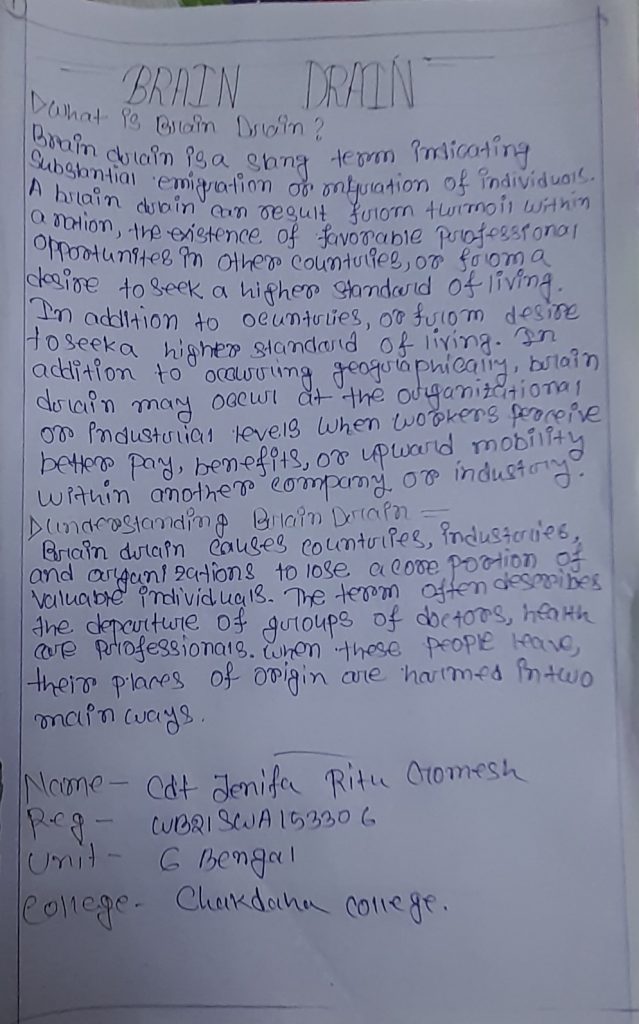 BRAIN DRAIN
What is Brain Drain?
Brain drain is a slang term indicating
substantial emigration or migration of individuals.
A brain drain can result from turmoil within
a nation, the existence of favorable professional
opportunites in other countries, or from a
desire to seek a higher standard of living.
In addition to countries, or from desire
to seek a higher standard of living. In
addition to occurring geographically, brain
drain may occur at the organizational
or industrial levels when workers perceive
better pay, benefits, or upward mobility
within another company or industry.
Understanding Brain Drain =
Brain drain causes countries, industries,
and organizations to lose a core portion of
valuable individuals. The term often describes
the departure of groups of doctors, health
care professionals. When these people leave,
their places of origin are harmed in two
main ways.
Name - Cdt Jenifa Ritu
Reg - WB21SWA153306
Unit - 6 Bengal
College - Chakdaha college.